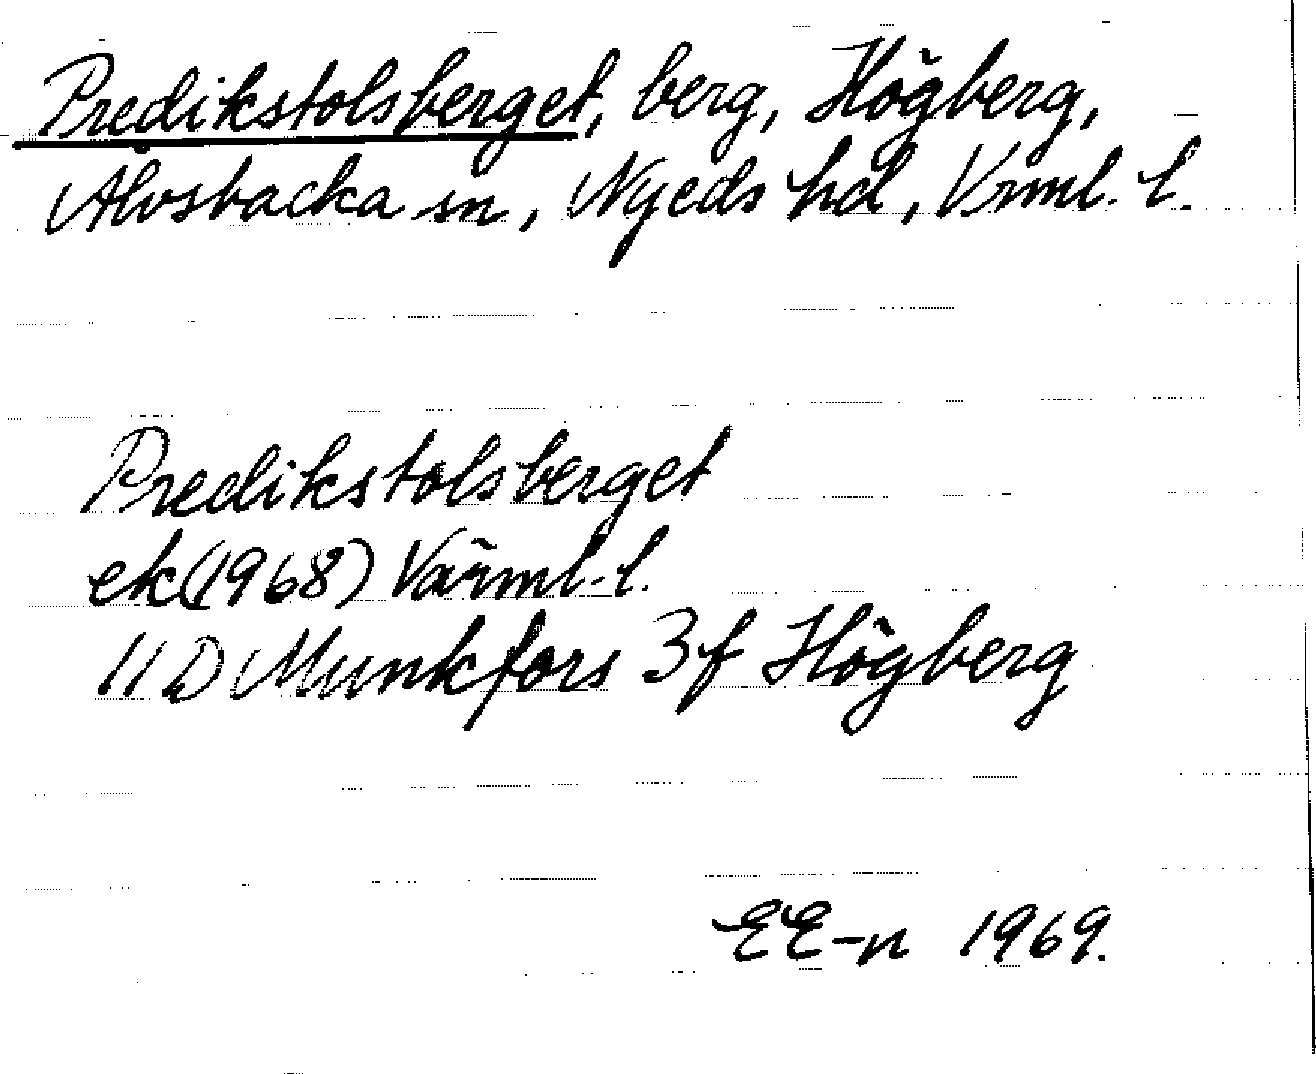 Predikstolsberget, berg, Högberg,
Älvsbacka sn, Nyeds hd, Vrml. l.
Predikstolsberget
ek (1968) Värml. l.
11 D Munkfors 3 f Högberg
EE-n 1969.